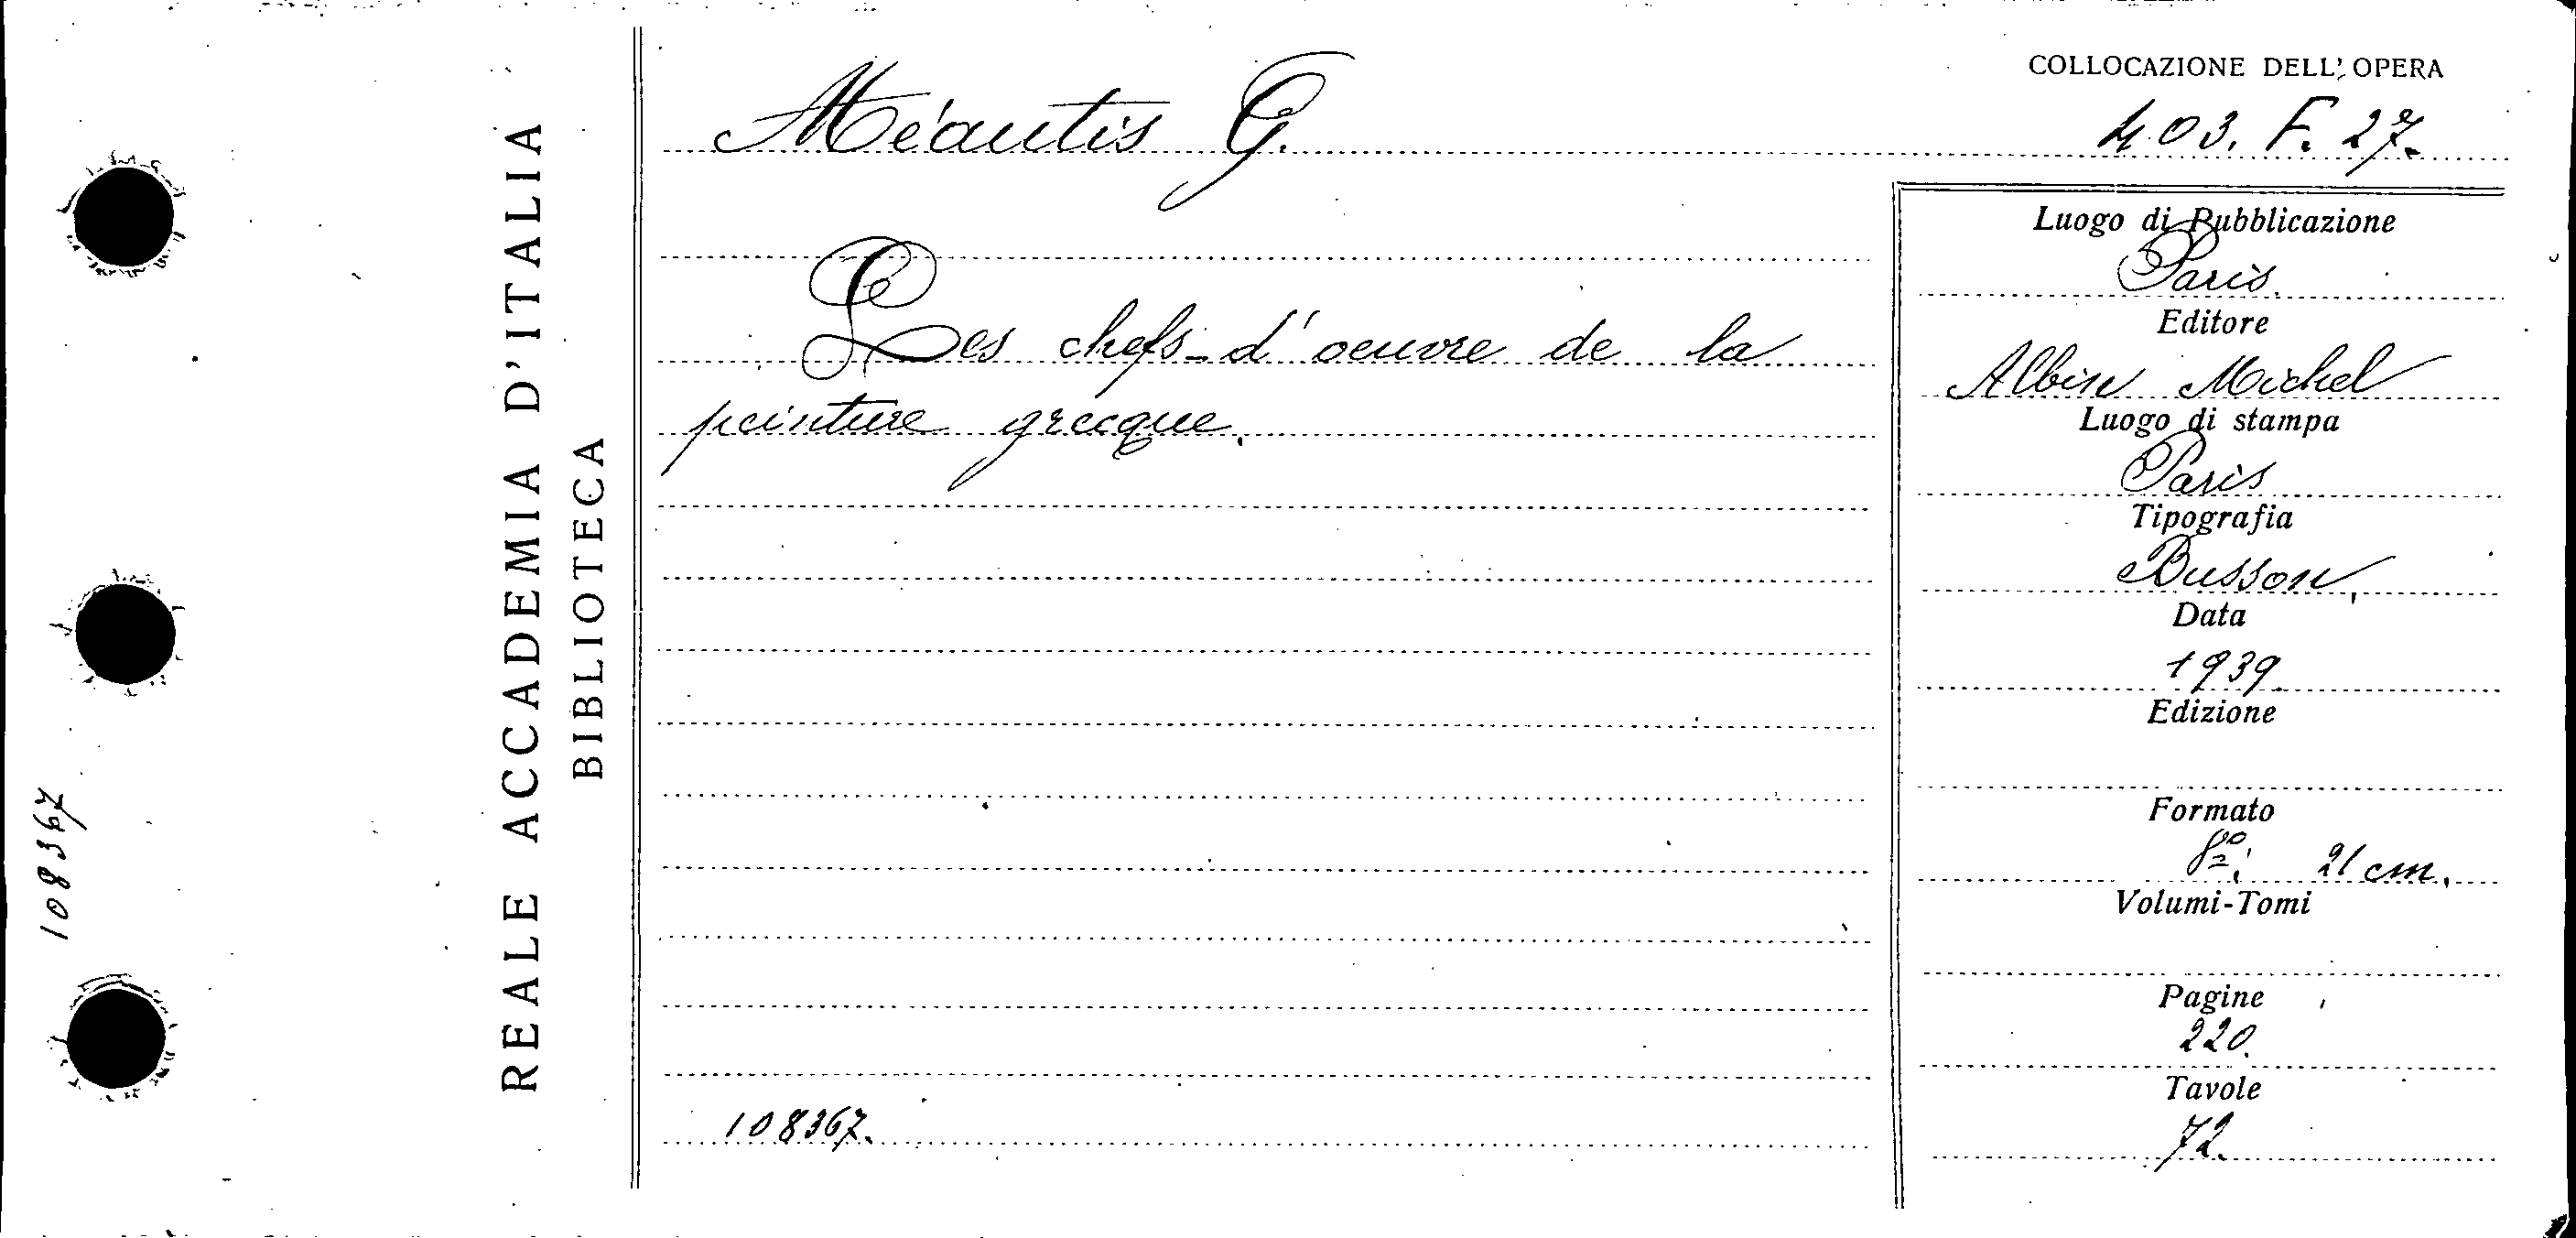 108367
REALE ACCADEMIA D'ITALIA
BIBLIOTECA
Méautis G.
Les chefs-d'oeuvre de la
peinture grecque.
108367.
COLLOCAZIONE DELL'OPERA
403. F. 27.
Luogo di Pubblicazione
Paris.
Editore
Albin Michel
Luogo di stampa
Paris
Tipografia
Busson.
Data
1939.
Edizione
Formato
8º. 21 cm.
Volumi-Tomi
Pagine
220.
Tavole
72.